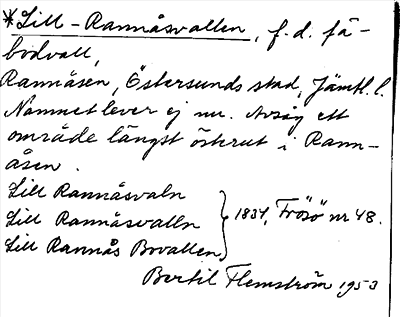 *Lill-Rannåsvallen, f.d. fä-
bodvall,
Rannåsen, Östersunds stad, Jämtl. l.
Namnet lever ej nu. Avsåg ett
område längst österut i Rann-
åsen.
Lill Rannåsvaln
Lill Rannåsvalln } 1834, Frösö nr 48.
Lill Rannås Bovallen
Bertil Flemström 1953